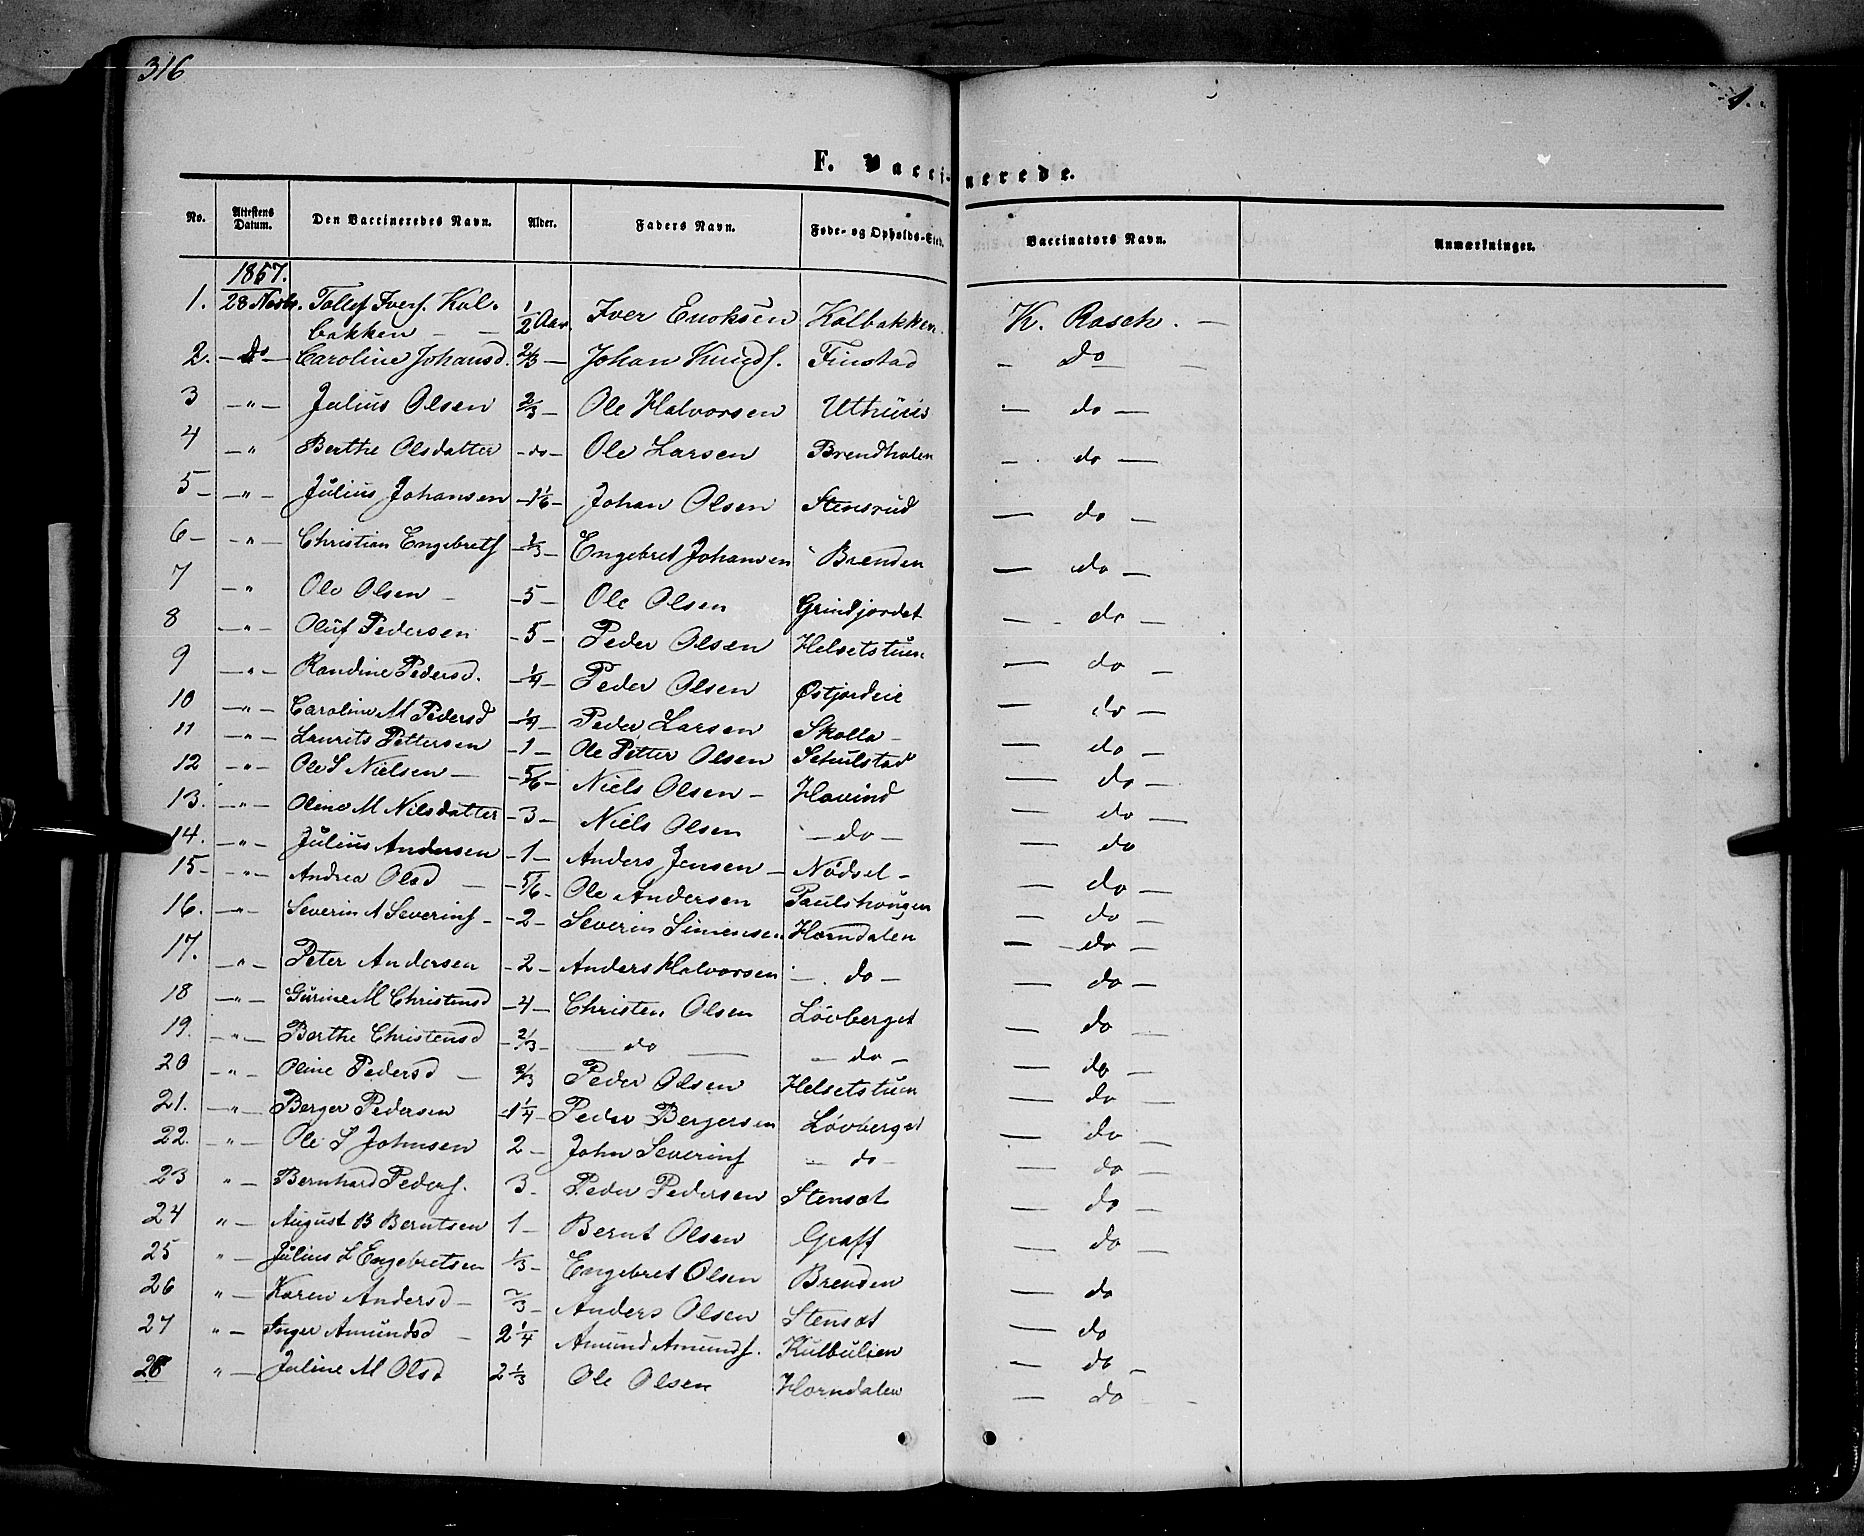 316
1.
F. Vaccinerede.
No. Attestens Datum. Den Vaccineredes Navn. Alder. Faders Navn. Føde- og Opholds-Sted. Vaccinators Navn. Anmærkninger.
1867.
1. 28 Novbr. Tollef Ivers. Kal- ½ Aar. Iver Enoksen Kalbakken K. Rasch. —
bakken — —
2. — do — Caroline Johansd. 2/3 — Johan Knuds. Finstad — Do — —
3 — " — Julius Olsen 2/3 — Ole Halvorsen Uthuus — do —
4 — " — Berthe Olsdatter — do — Ole Larsen Brendholen — do —
5 — — " — Julius Johansen — 1/6 — Johan Olsen Stensrud — do —
6 — — " — Christian Engebrets — 1/3 — Engebret Johansen Brenden — do —
7 — " — Ole Olsen — — 5 — Ole Olsen Grindjordet — do —
8 — " — Oluf Pedersen — 5 — Peder Olsen Helsetstuen — do —
9 — " — Randine Pedersd. — ¼ — Peder Olsen Østjordeie — do —
10 — " — Caroline M Pedersd — ¼ — Peder Larsen Skolla — — do —
11 — " — Laurits Pettersen — 1 — Ole Petter Olsen Schulstad — do —
12 — " — Ole S Nielsen — — 5/6 — Niels Olsen — Hovind — do —
13. — " — Oline M Nilsdatter — 3 — Niels Olsen — do — — do
14. — " — Julius Andersen — 1 — Anders Jensen — Nødsel — — do —
15 — — " — Andrea Olsd — — 5/6 — Ole Andersen Paulshougen — do —
16. — " — Severin A Severins — — 2 — Severin Simensen Horndalen — do —
17. — " — Peter Andersen — 2 — Anders Halvorsen — do — — do —
18 — " — Gurine M Christensd — 4 — Christen Olsen Løvberget — do —
19. — " — Berthe Christensd — 2/3 — — do — — do — — do —
20 — " — Oline Pedersd — 2/3 Peder Olsen Helsetstuen — do —
21. — " — Berger Pedersen — 1¼ — Peder Bergersen Løvberget — do —
22. " — Ole S Johnsen 2 — John Severins — do — — do —
23 " — Bernhard Peders. 3 — Peder Pedersen Stenset — do —
24 " — August B Berntsen 1 — Bernt Olsen Graff — do —
25 " — Julius L Engebretsen 1/3 — Engebret Olsen Brenden — do
26 " — Karen Andersd — 2/3 — Anders Olsen Stenset — do
27 " — Inger Amundsd — 2¼ Amund Amunds. Kulbulien — do —
28 " — Juline M Olsd 2 1/3 Ole Olsen Horndalen — do —